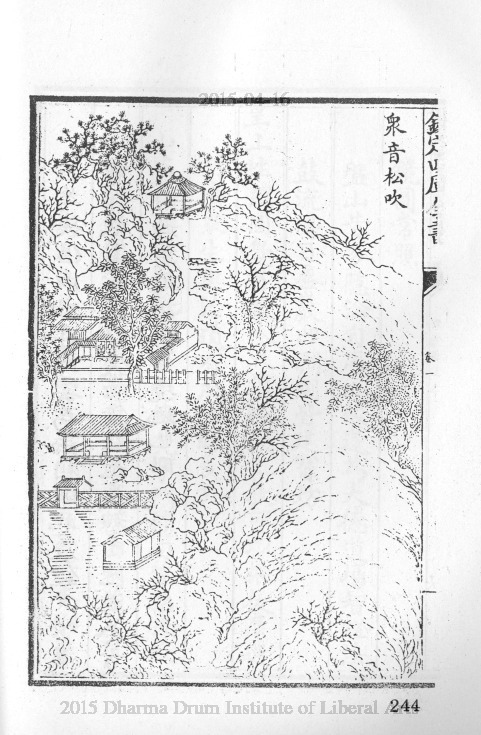 2015-04-16
欽定四庫全書
衆音松吹
2015 Dharma Drum Institute of Liberal
244